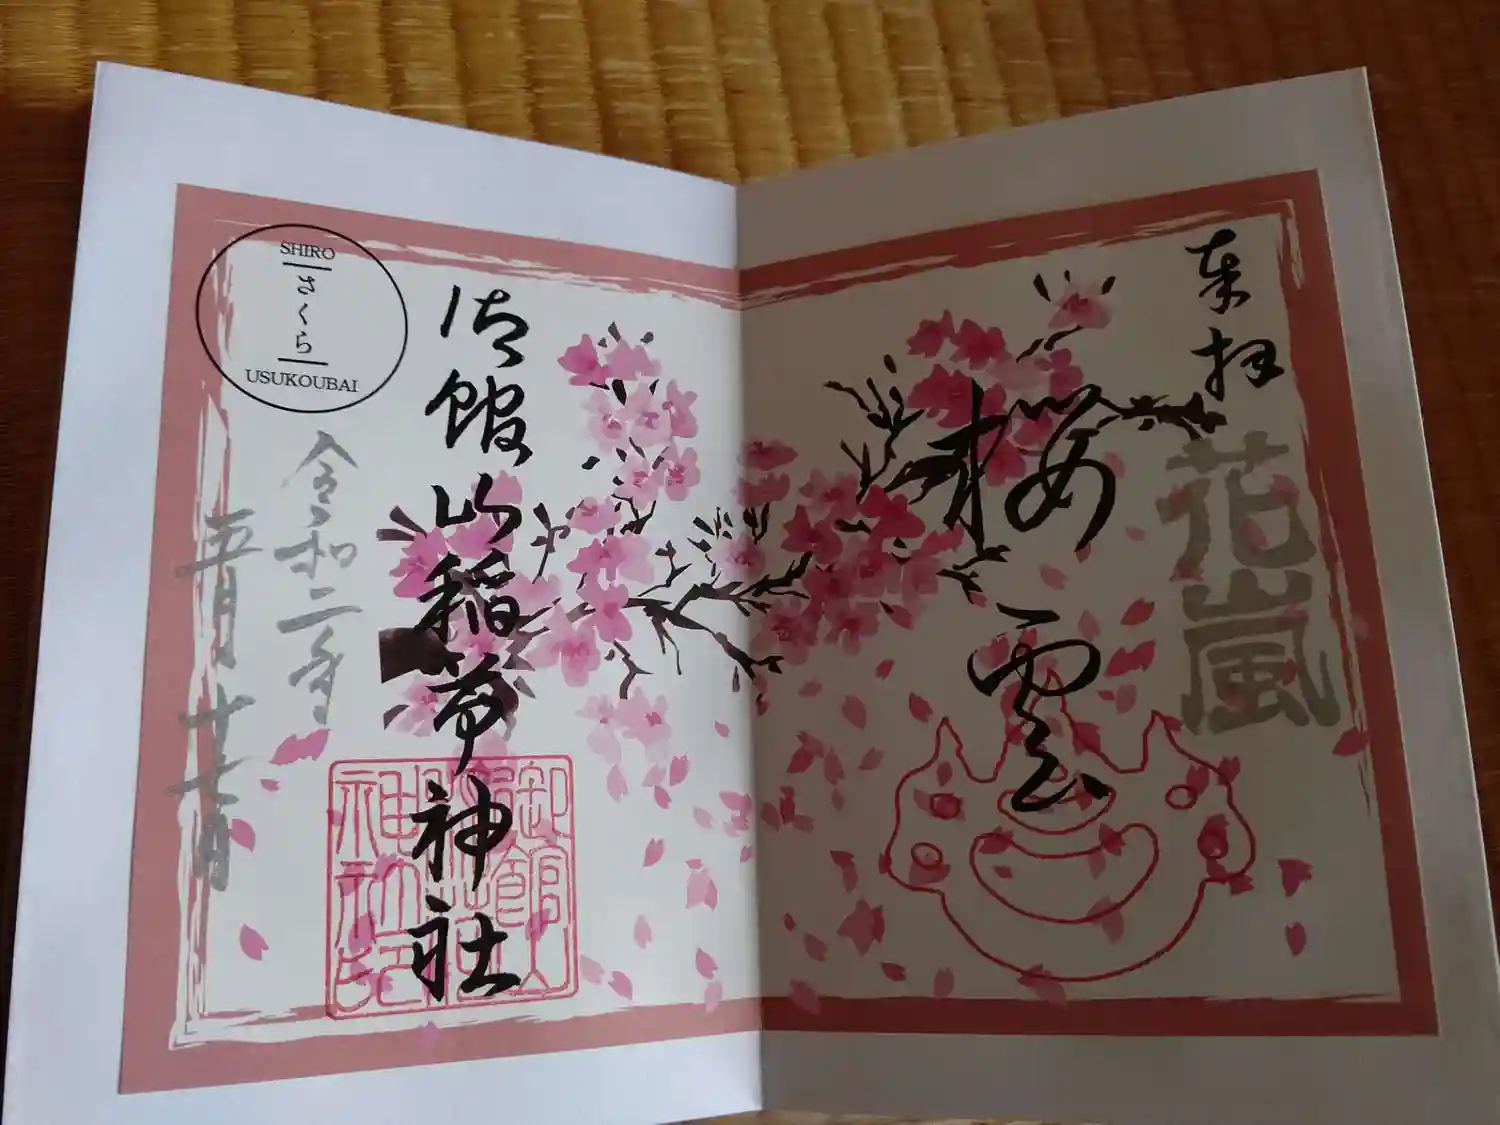 奉拝
花嵐
桜雲
御館山稲荷神社
令和二年
五月十七日
SHIRO
さくら
USUKOUBAI
御館山
神社印